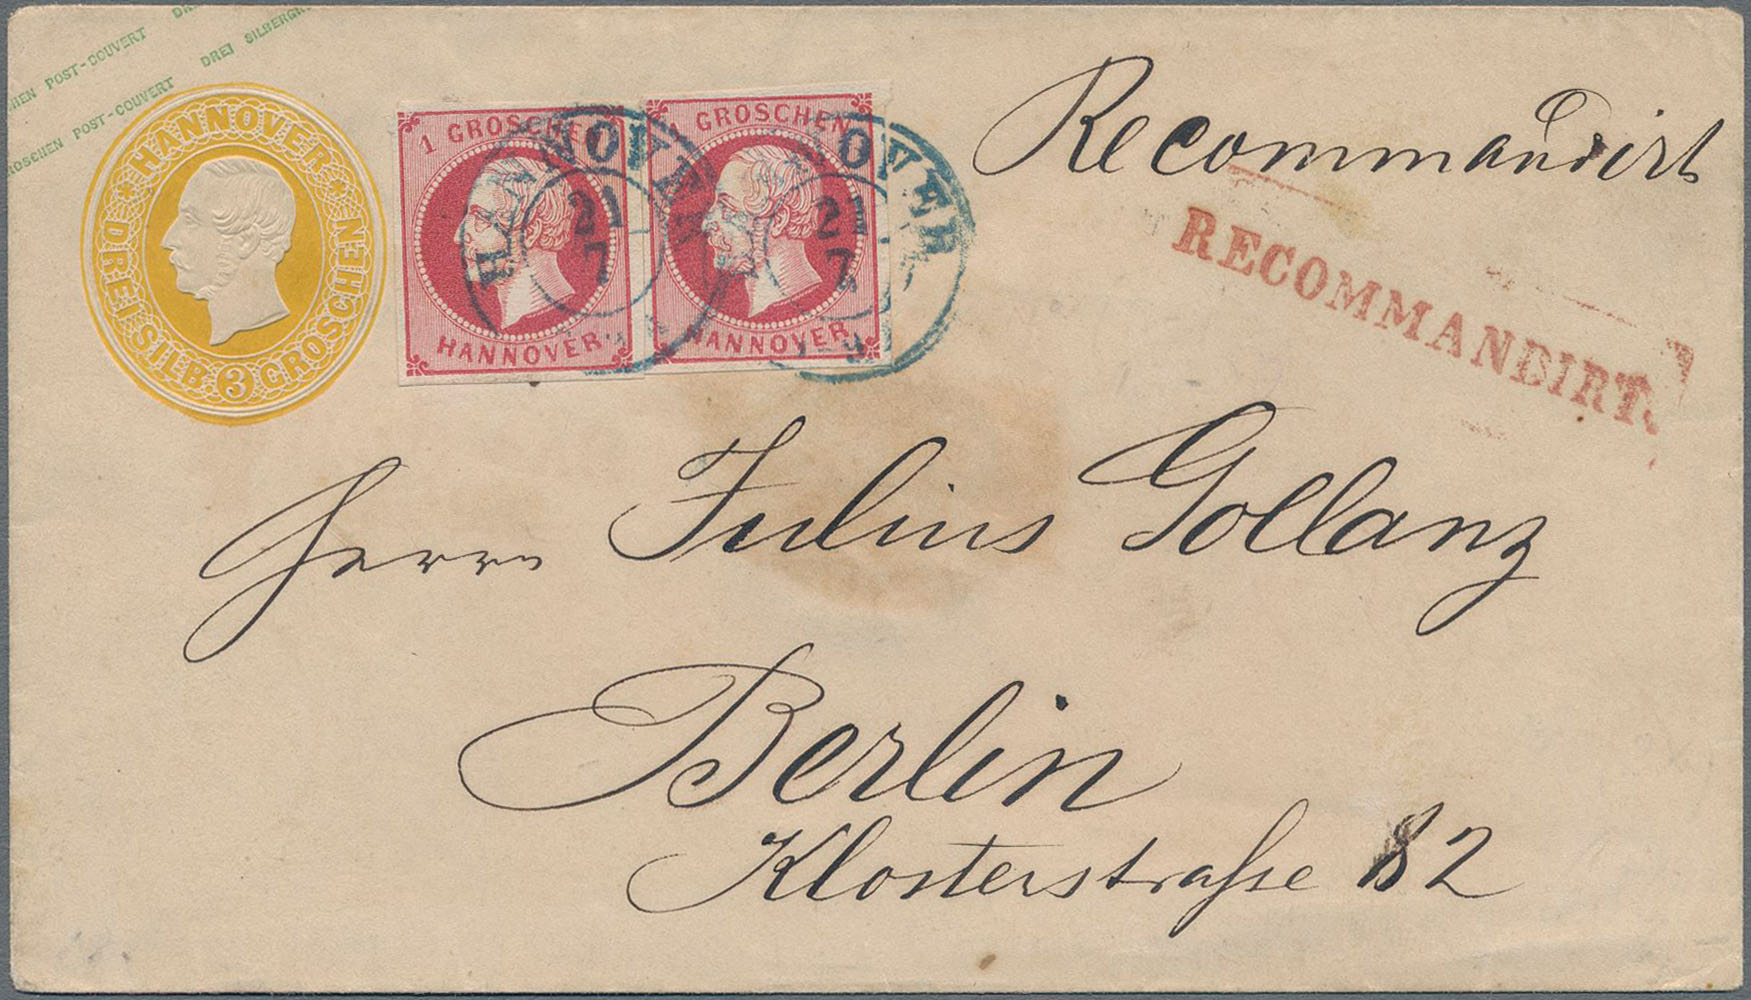 DREI SILBERGR
CHEN POST-COUVERT
GROSCHEN POST-COUVERT
HANNOVER
DREI SILB. 3 GROSCHEN
1 GROSCHEN
HANNOVER
GROSCHEN
HANNOVER
HANNOVER
21
7
HANNOVER
21
7
Recommandirt
RECOMMANDIRT.
Herrn Julius Gollanz
Berlin
Klosterstraße 82